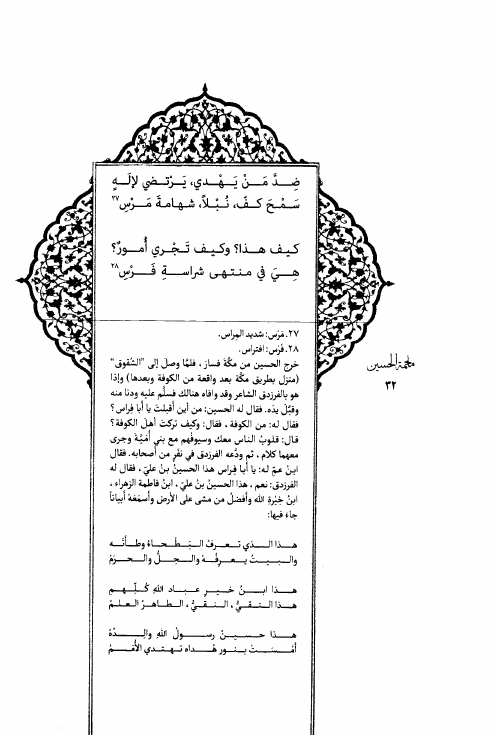 ضِدَّ مَنْ يَهْدي، يَرْتضي لإلَهٍ
سَمْحَ كفّ، نُبْلاً، شهامةَ مَرْسِ٢٧
كيف هذا؟ وكيف تَجْري أُمورٌ؟
هِيَ في منتهى شراسةِ فَرْسِ٢٨
٢٧. مَرْس: شديد المِراس.
٢٨. فَرْس: افتراس.
خرج الحسين من مكّة فسار، فلمّا وصل إلى "الشُقوق"
(منزل بطريق مكّة بعد واقعة من الكوفة وبعدها) وإذا
هو بالفرزدق الشاعر وقد وافاه هنالك فسلّم عليه ودنا منه
وقبَّل يدَه. فقال له الحسين: من أين أقبلتَ يا أبا فِراس؟
فقال له: من الكوفة، فقال: وكيف تركتَ أهلَ الكوفة؟
قال: قلوبُ الناس معك وسيوفُهم مع بني أُمَيَّة وجرى
معهما كلام، ثم ودَّعه الفرزدق في نفَرٍ من أصحابه. فقال
ابنُ عمّ له: يا أبا فِراس هذا الحسينُ بنُ عليّ، فقال له
الفرزدق: نعم، هذا الحسينُ بنُ عليّ، ابنُ فاطمةَ الزهراء،
ابنُ خِيْرةِ الله وأفضلُ من مشى على الأرض وأسمَعَهُ أبياتاً
جاء فيها:
هذا الذي تعرفُ البَطْحاءُ وطأتَه
والبيتُ يعرفُهُ والحِلُّ والحرَمُ
هذا ابنُ خيرِ عبادِ اللهِ كُلِّهِم
هذا التقيُّ، النقيُّ، الطاهرُ العلمُ
هذا حسينٌ رسولُ اللهِ والِدُهُ
أمْسَتْ بنور هُداه تهتدي الأُمَمُ
ملحمة الحسين
٣٢